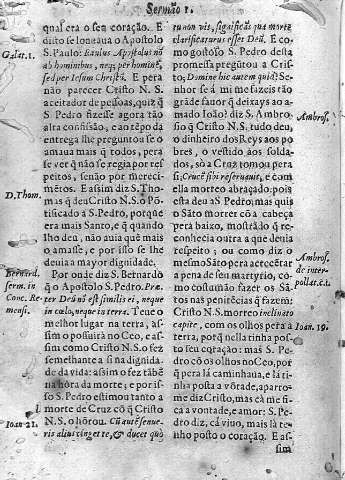 Sermão 1.
qual era o seu coração. E
disto se louuaua o Apostolo
S. Paulo: Paulus Apostolus nõ
ab hominibus, neq; per hominẽ,
sed per Iesum Christũ. E pera
não parecer Cristo N.S.
aceitador de pessoas, quiz q̃
S. Pedro fizesse agora tão
alta confissão, e ao tẽpo da
entrega lhe preguntou se o
amaua mais q̃ todos, pera
se ver q̃ não se regia por res
peitos, senão por mereci-
mẽtos. E assim diz S. Tho-
mas q̃ deu Cristo N.S. o Põ-
tificado a S. Pedro, porque
era mais Santo, e q̃ quando
lho deu, não auia quẽ mais
o amasse, e por isso se lhe
deuia a mayor dignidade.
Por onde diz S. Bernardo
q̃ o Apostolo S. Pedro. Præ-
ter Deũ nõ est similis ei, neque
in cœlo, neque in terra. Teue o
melhor lugar na terra, as-
simo possuirà no Ceo, e assim
como Cristo N.S. o fez
semelhante a si na dignida-
de da vida: assim o fez tãbẽ
na hora da morte; e por is-
so S. Pedro estimou tanto a
morte de Cruz cõ q̃ Cristo
N.S. o hõrou. Cũ autẽ senue-
ris alius cinget te, & ducet quò
Galat. 1.
D. Thom.
Bernard.
serm. in
Conc. Re-
mensi.
Ioan 21.
tu non vis, significãs qua morte
clarificaturus esset Deũ. E co-
mo gostoso S. Pedro desta
promessa pregũtou a Cris-
to; Domine hic autem quid? Se-
nhor se à mi me fazeis tão
grãde fauor q̃ deixays ao a-
mado Ioão? diz S. Ambro-
sio q̃ Cristo N.S. tudo deu,
o dinheiro dos Reys aos po
bres, o vestido aos solda-
dos, sò a Cruz tomou pera
si; Crucẽ sibi reseruauit, e com
ella morreo abraçado; pois
esta deu a S. Pedro; mas quis
o Sãto morrer cõ a cabeça
pera baixo, mostrãdo q̃ re-
conhecia outra a que deuia
respeito; ou como diz o
mesmo Sãto pera acceitar
a pena de seu martyrio, co-
mo costumão fazer os Sã-
tos nas penitẽcias q̃ fazem:
Cristo N.S. morreo inclinato
capite, com os olhos pera a
terra, porq̃ nella tinha pos-
to seu coração: mas S. Pe-
dro cõ os olhos no Ceo, porq̃
que pera là caminhaua, e là ti-
nha posta a võtade, aparto-
me diz Cristo, mas cà me fi-
ca a vontade, e amor: S. Pe-
dro diz, cà viuo, mais là te-
nho posto o coração. E as-
sim
Ambros.
Ambros.
de inter-
pellat. c. 1.
Ioan. 19.